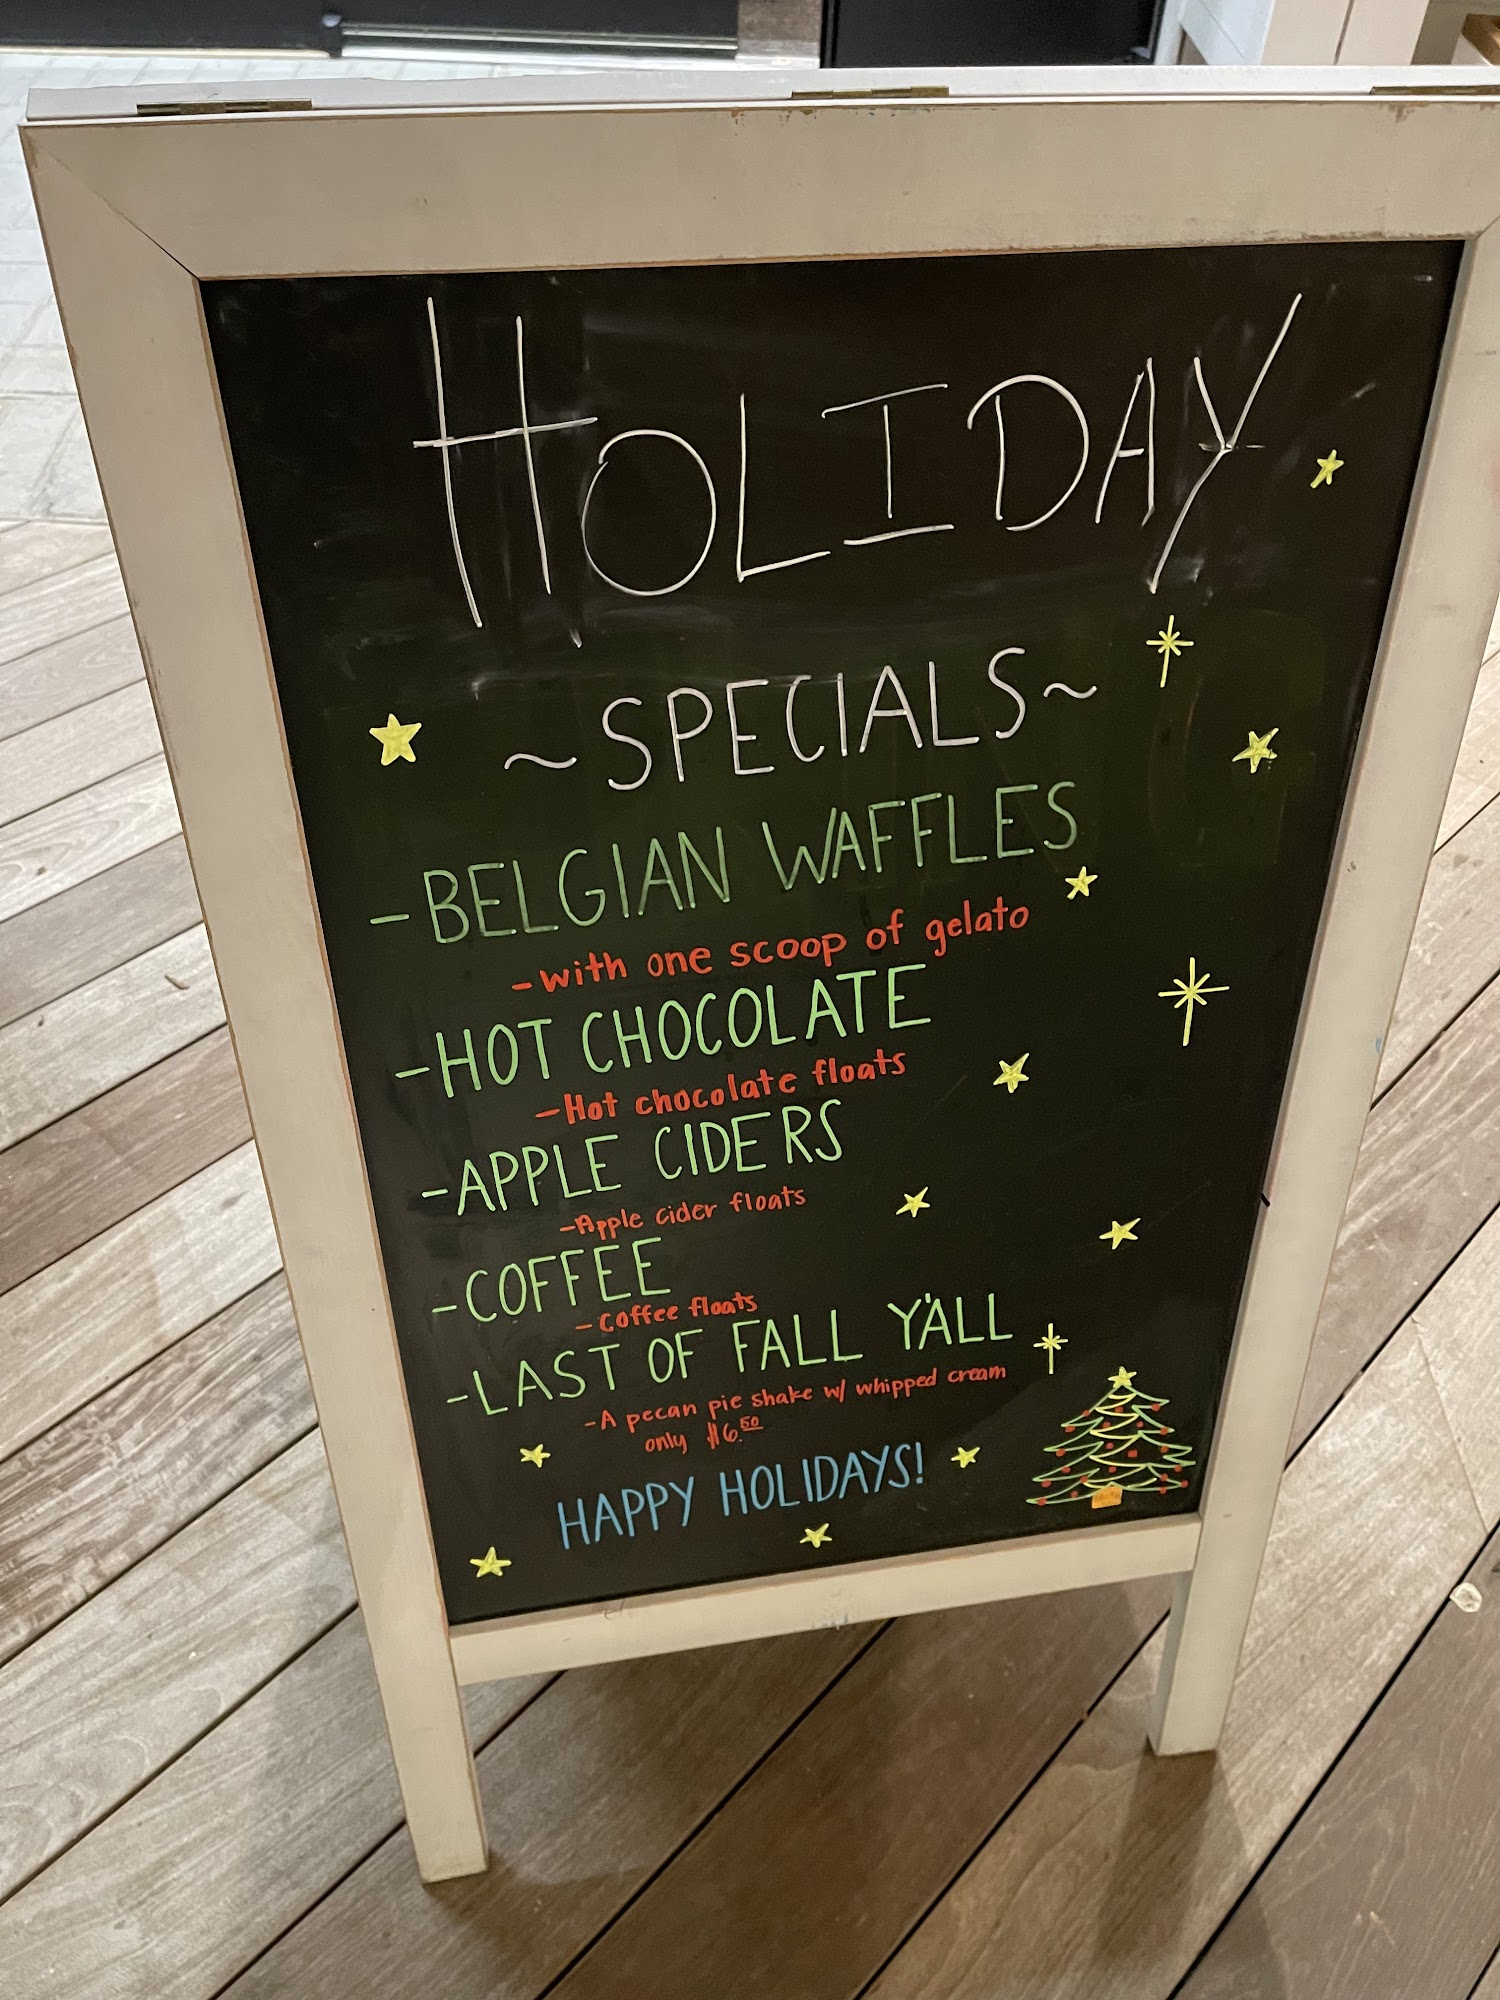 HOLIDAY
~SPECIALS~
-BELGIAN WAFFLES
-with one scoop of gelato
-HOT CHOCOLATE
-Hot chocolate floats
-APPLE CIDERS
-Apple cider floats
-COFFEE
-Coffee floats
-LAST OF FALL Y'ALL
-A pecan pie shake w/ whipped cream
only $6.50
HAPPY HOLIDAYS!